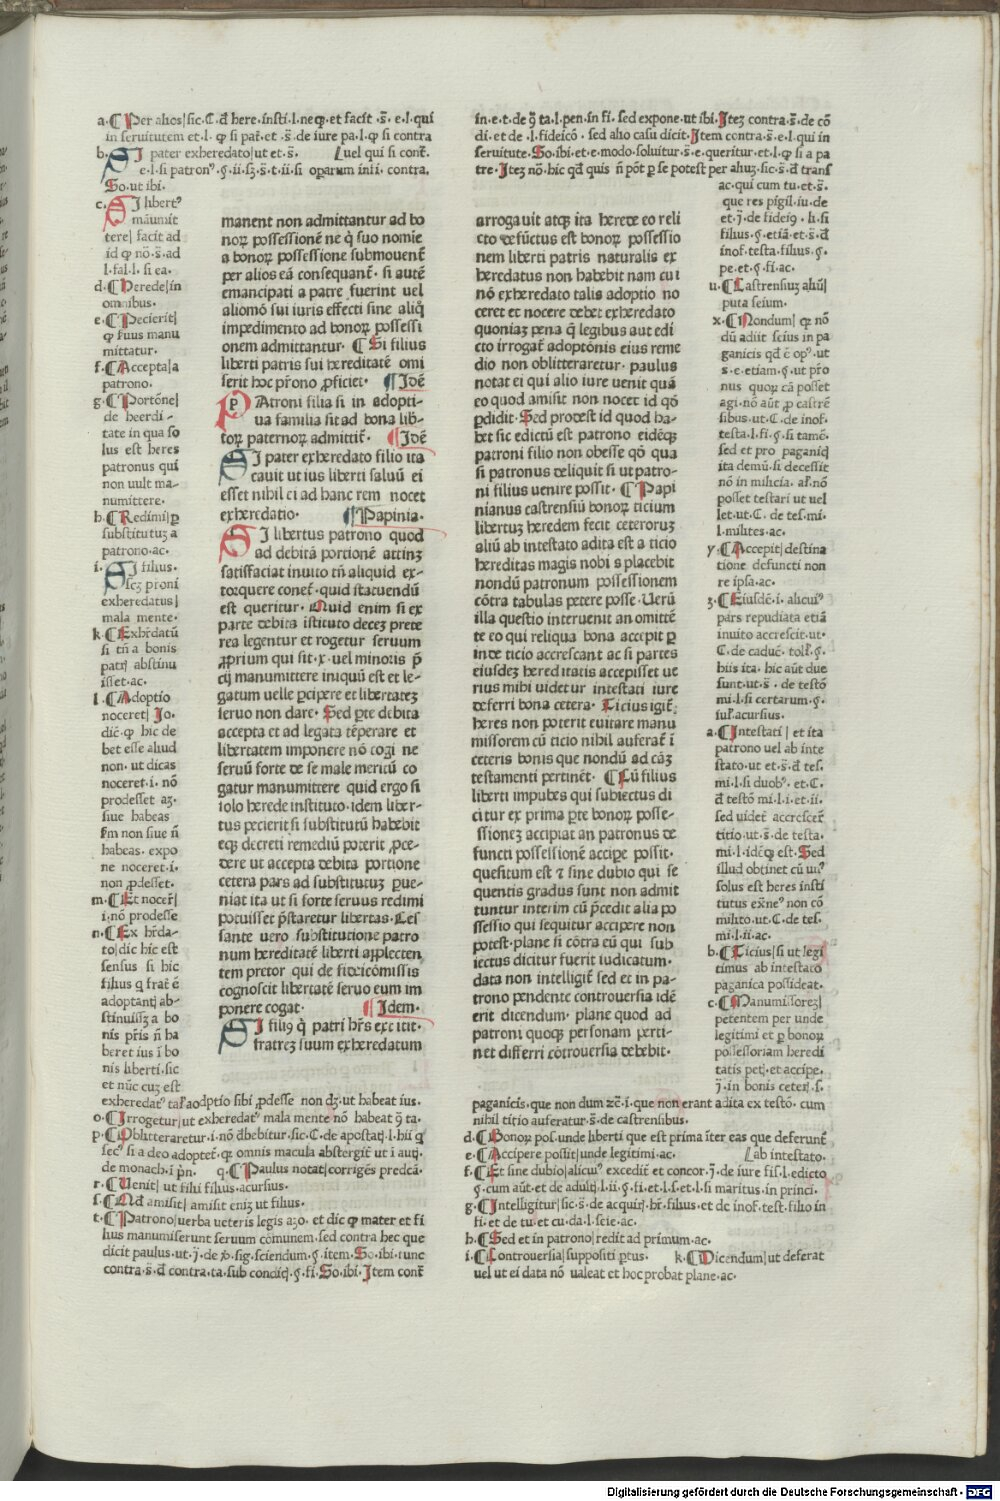 a. ¶Per alios|sic.C.đ here.insti.l.neqꝫ.et facit .s̄. e.l.qui
in seruitutem et.l. ꝙ si pat̄.et .s̄.de iure pa.l.ꝙ si contra
b. SI pater exheredato|ut et.s̄. Luel qui si cont̄.
e.l.si patron⁹.§.ii.sꝫ.s̄.t.ii.si oꝑarum in.ii.contra.
So.ut ibi.
c. SI libert⁹
māumit
tere| facit ad
id ꝙ nō.s̄.ad
l.fal.l. si ea.
d. ¶Herede|in
omnibus.
e. ¶Pecierit|
ꝙ suus manu
mittatur.
f. ¶Accepta|a
patrono.
g. ¶Portōne|
de heerdi-
tate in qua so
lus est heres
patronus qui
non uult ma-
numittere.
h. ¶Redimi|ꝑ
substitutuꝫ a
patrono.ac.
i. SI filius.
scꝫ pr̄oni
exheredatus|
mala mente.
k. ¶Exhr̄datū
si tn̄ a bonis
patr| abstinu
isset.ac.
l. ¶Adoptio
noceret| Jo.
dic̄.ꝙ hic de
bet esse aliud
non.ut dicas
noceret.i.nō
prodesset aꝫ.
siue habeas
fm non siue n̄
habeas.expo
ne noceret.i.
non ꝓdesset.
m. ¶Et nocer|
i.nō prodesse
n. ¶Ex hr̄da-
to|dic hic est
sensus si hic
filius q̄ frat̄ ē
adoptant| ab-
stinuissꝫ a bo
nis pr̄is n̄ ha
beret ius ī bo
nis liberti.sic
et nūc cuꝫ est
manent non admittantur ad bo
noꝝ possessionē ne q̄ suo nomie
a bonoꝝ possessione submouent̄
per alios eā consequant̄. si autē
emancipati a patre fuerint uel
aliomō sui iuris effecti sine aliq̄
impedimento ad bonoꝝ possessi
onem admittantur. ¶Si filius
liberti patris sui hereditatē omi
serit hoc pr̄ono ꝓficiet. ¶Idē
PAtroni filia si in adopti-
ua familia sit ad bona lib-
toꝝ paternoꝝ admittit̄. ¶Idē
SI pater exheredato filio ita
cauit ut ius liberti saluū ei
esset nihil ei ad hanc rem nocet
exheredatio. ¶Papinia.
SI libertus patrono quod
ad debitā portionē attinꝫ
satisfaciat inuito tn̄ aliquid ex-
torquere conet̄. quid statuendū
est queritur. Quid enim si ex
parte debita īstituto deceꝫ prete
rea legentur et rogetur seruum
ꝓprium qui sit.x.uel minoris p̄
cij manumittere iniquū est et le-
gatum uelle ꝑcipere et libertateꝫ
seruo non dare. Sed ꝑte debita
accepta et ad legata tēperare et
libertatem imponere nō cogi ne
seruū forte de se male meritū co
gatur manumittere quid ergo si
solo herede instituto.idem liber-
tus pecierit si substitutū habebit
eqꝫ decreti remediū poterit ꝓce-
dere ut accepta debita portione
cetera pars ad substitutuꝫ ꝑue-
niat ita ut si forte seruus redimi
potuisset p̄staretur libertas. Ces
sante uero substitutione patro
num hereditatē liberti āplecten
tem pretor qui de fideicōmissis
cognoscit libertatē seruo eum im
ponere cogat. ¶Idem.
SI filiꝰ q̄ patri hr̄s extitit.
fratreꝫ suum exheredatum
exheredat⁹ tal̄|aodptio sibi ꝓdesse non dꝫ.ut habeat ius.
o. ¶Irrogetur|ut exheredat⁹ mala mente nō habeat ꝯ ta.
p. ¶Oblitteraretur.i.nō đbebitur.sic.C.de apostat|.l.hii q̄
sec⁹ si a deo adoptet̄.qꝫ omnis macula abstergit̄ ut i autj.
de monach.i p̄n. q. ¶Paulus notat|corrigēs predcā.
r. ¶Uenit| ut filii filius.acursius.
s. ¶Nō amisit| amisit eniꝫ ut filius.
t. ¶Patrono|uerba ueteris legis aꝫo. et dic ꝙ mater et fi
lius manumiserunt seruum cōmunem.sed contra hec que
dicit paulus ut.j̄.de ꝟo.sig.sciendum.§.item. So.ibi.tunc
contra.s̄.đ contra.ta.sub condic|.§.fi. So.ibi. Item cont̄
in.e.t.de ꝯ ta.l.pen.in fi. sed expone.ut ibi. Iteꝫ contra.s̄.de cō
di.et de .l.fideicō. sed alio casu dicit. Item contra.s̄.e.l.qui in
seruitute. So.ibi.et.e.modo soluitur.s̄.e.queritur.et.l.ꝙ si a pa
tre. Iteꝫ nō.hic qđ quis n̄ pōt ꝑ se potest per aliuꝫ.sic.s̄.đ trans
ac.qui cum tu.et.s̄.
que res pigil.iu.de
et.j̄.de fideiꝯ.li.si
filius.§.etiā.et.s̄.đ
inof.testa.filius.§.
pe.et.§.fi.ac.
u. ¶Castrensiuꝫ aliū|
puta seium.
x. ¶Nondum| qꝫ nō
dū adiit seius in pa
ganicis qđ ē op⁹.ut
s.e.etiam.§.ut pr̄o
nus quoꝝ cā posset
agi.nō aūt ꝓ castrē
sibus.ut.C.de inof.
testa.l.fi.§.si tamē.
sed et pro paganiꝗ
ita demū.si decessit
nō in milicia. al̄.nō
posset testari ut uel
let.ut.C. de tes.mi.
l.milites.ac.
y. ¶Accepit|destina
tione defuncti non
re ipsa.ac.
z. ¶Eiusdē.i. alicui⁹
pars repudiata etiā
inuito accrescit.ut.
C.de caduc̄. toll.§.
hiis ita. hic aūt due
sunt.ut.s̄. de testō
mi.l.si certarum.§.
iul.acursius.
a. ¶Intestati| et ita
patrono uel ab inte
stato.ut et.s̄.đ tes.
mi.l.si duob⁹. et.C.
đ testō mi.l.i.et.ii.
sed uidet̄ accrescer̄
titio.ut.s̄.de testa.
mi.l.idēqꝫ est. Sed
illud obtinet cū un⁹
solus est heres insti
tutus exne⁹ non cō
milito.ut.C.de tes.
mi.l.ii.ac.
b. ¶Ticius|si ut legi
timus ab intestato
paganica possideat.
c. ¶Manumissoreꝫ|
petentem per unde
legitimi et ꝑ bonoꝝ
possessoriam heredi
tatis pet|.et accipe.
j̄.in bonis ceter|.s.
arrogauit atqꝫ ita herede eo reli
cto defūctus est bonoꝝ possessio
nem liberti patris naturalis ex
heredatus non habebit nam cui
nō exheredato talis adoptio no
ceret et nocere debet exheredato
quoniaꝫ pena q̄ legibus aut edi
cto irrogat̄ adoptōnis eius reme
dio non oblitteraretur. paulus
notat ei qui alio iure uenit quā
eo quod amisit non nocet id qđ
ꝑdidit. Sed prodest id quod ha-
bet sic edictū est patrono eidēqꝫ
patroni filio non obesse qđ qua
si patronus deliquit si ut patro-
ni filius uenire possit. ¶Papi
nianus castrensiū bonoꝝ ticium
libertuꝫ heredem fecit ceteroruꝫ
aliū ab intestato adita est a ticio
hereditas magis nobis placebit
nondū patronum possessionem
cōtra tabulas petere posse. Uerū
illa questio interuenit an omittē
te eo qui reliqua bona accepit ꝑ
inde ticio accrescant ac si partes
eiusdeꝫ hereditatis accepisset ue
rius mihi uidetur intestati iure
deferri bona cetera. Ticius igit̄
heres non poterit euitare manu
missorem cū ticio nihil auferat̄ ī
ceteris bonis que nondū ad cāꝫ
testamenti pertinēt. ¶Cū filius
liberti impubes qui subiectus di
citur ex prima ꝑte bonoꝝ posse-
ssioneꝫ accipiat an patronus de
functi possessionē accipe possit.
quesitum est ⁊ sine dubio qui se
quentis gradus sunt non admit
tuntur interim cū p̄cedit alia po
ssessio qui sequitur accipere non
potest.plane si cōtra eū qui sub
iectus dicitur fuerit iudicatum.
data non intelligit̄ sed et in pa-
trono pendente controuersia idē
erit dicendum. plane quod ad
patroni quoqꝫ personam perti-
net differri cōtrouersia debebit.
paganicis.que non dum ⁊c̄.i.que non erant adita ex testō. cum
nihil titio auferatur.s̄.de castrensibus.
d. ¶Bonoꝝ pos.unde liberti que est prima īter eas que deferunt̄
e. ¶Accipere possit|unde legitimi.ac. Lab intestato.
f. ¶Et sine dubio|alicui⁹ excedit̄ et concor.j̄.de iure fis.l.edicto
§.cum aūt.et de adult|.l.ii.§.fi.et.l.s.et.l.si maritus.in princi.
g. ¶Intelligitur|sic.s̄.de acquir|.hr̄.filius.et de inof.test.filio in
fi.et de tu.et cu.da.l.scie.ac.
h. ¶Sed et in patrono|redit ad primum.ac.
i. ¶Controuersia|suppositi ꝑtus. k. ¶Dicendum|ut deferat
uel ut ei data nō ualeat et hoc probat plane.ac.
Digitalisierung gefördert durch die Deutsche Forschungsgemeinschaft - DFG